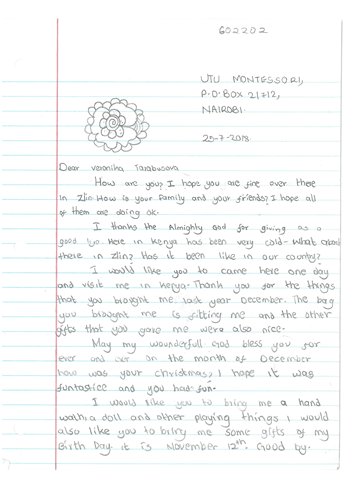 602202
UTU MONTESSORI,
P.O.BOX 21712,
NAIROBI.
25-7-2018.
Dear Veronika Tarabusova
How are you? I hope you are fine over there
in Zlin. How is your Family and your friends? I hope all
of them are doing ok.
I thanks the Almighty God for giving as a
good Here in Kenya has been very cold. What about
there in Zlin? Has it been like in our country?
I would like you to came here one day
and visit me in Kenya. Thank you for the things
that you brought me last year December. The bag
you brought me is fitting me and the other
gifts that you gave me were also nice.
May my wounderfull God bless you for
ever and ever on the month of December
how was your christmas, I hope it was
funtastice and you had fun.
I would like you to bring me a hand
wathia doll and other playing things I would
also like you to bring me some gifts of my
Birth Day it is November 12th. Good by.